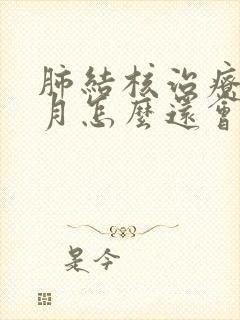 肺結核治療
月怎麼還會
是今